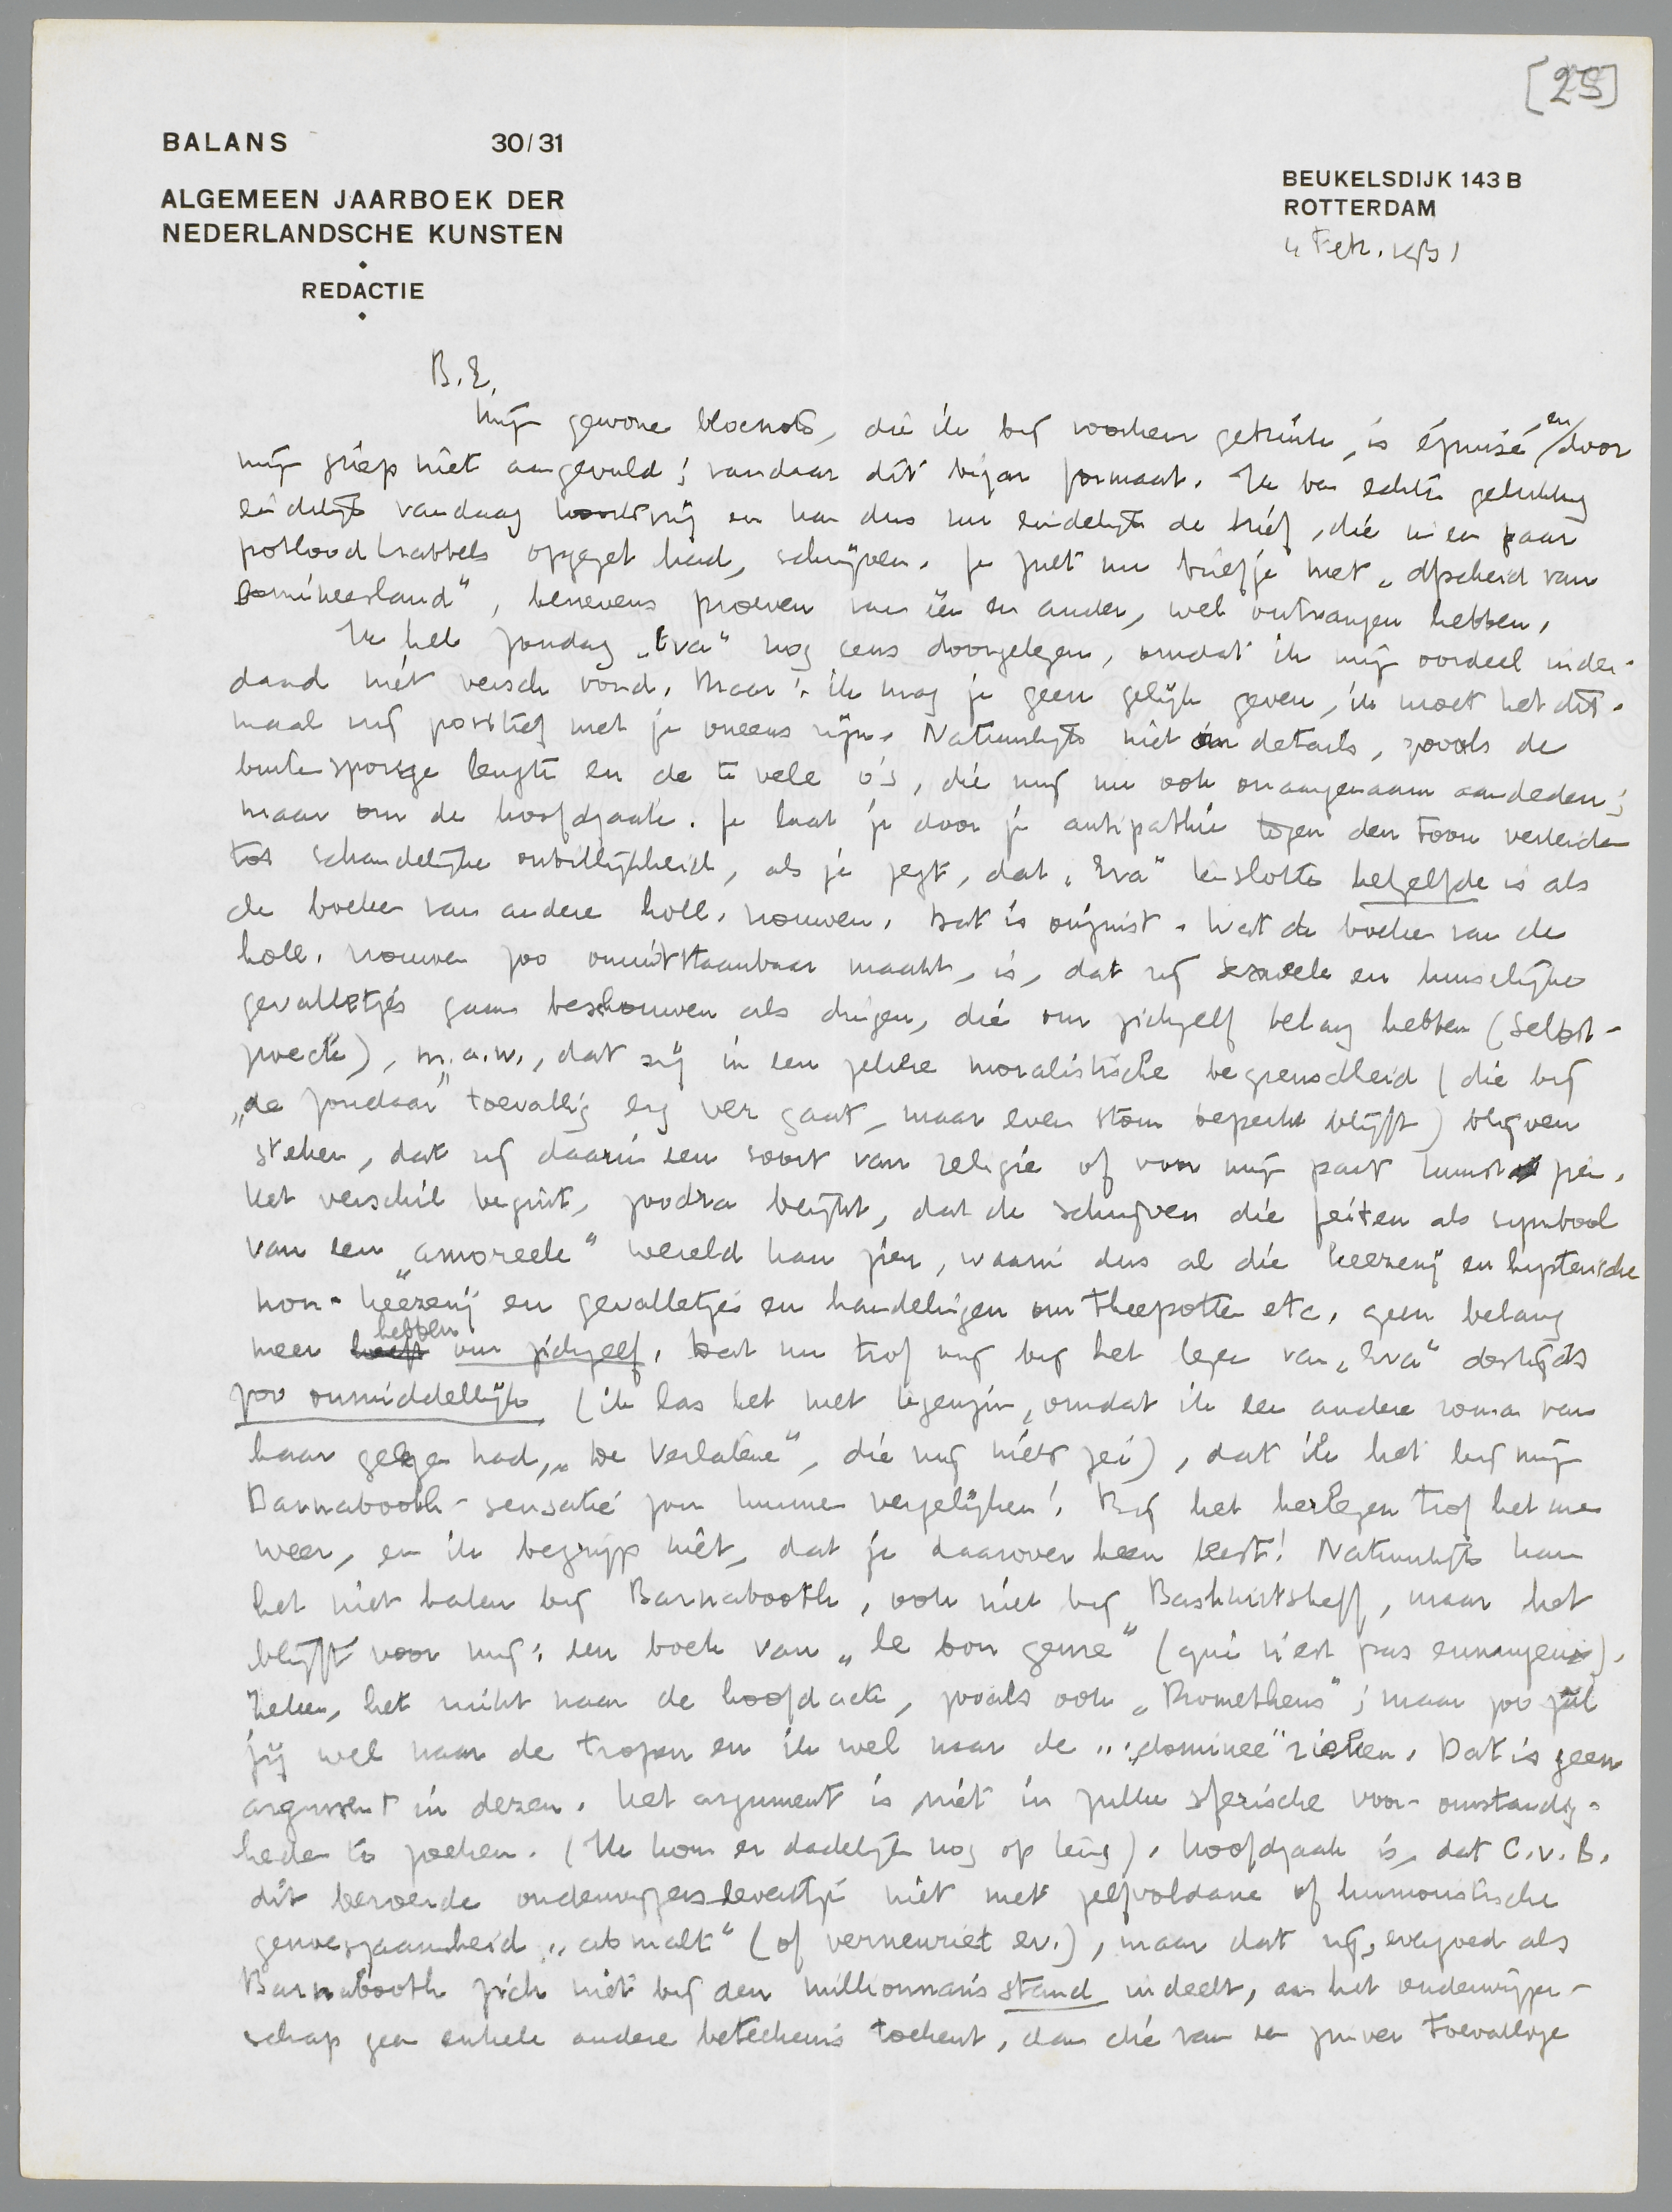 [25]
BALANS 30/31
ALGEMEEN JAARBOEK DER
NEDERLANDSCHE KUNSTEN
REDACTIE
BEUKELSDIJK 143 B
ROTTERDAM
4 Febr. 1931
B.E.
Mijn gewone blocnote, die ik bij voorkeur gebruik, is épuisé en door
mijn griep niet aangevuld; vandaar dit bizar formaat. Ik ben echter gelukkig
eindelijk vandaag koortsvrij en kan dus nu eindelijk de brief, die in een paar
potloodkrabbels opgezet had, schrijven. Je zult nu briefje met „Afscheid van
Domineesland", benevens proeven van een en ander, wel ontvangen hebben.
Ik heb zondag „Eva" nog eens doorgelezen, omdat ik mijn oordeel inder-
daad niet versch vond. Maar: ik mag je geen gelijk geven, ik moet het dit-
maal nog positief met je oneens zijn. Natuurlijk niet in details, zooals de
buitensporige lengte en de te vele o's, die mij nu ook onaangenaam aandeden;
maar om de hoofdzaak. Je laat je door je antipathie tegen den toon verleiden
tot schandelijke onbillijkheid, als je zegt, dat „Eva" tenslotte hetzelfde is als
de boeken van andere holl. vrouwen. Dat is onjuist. Wat de boeken van de
holl. vrouwen zoo onuitstaanbaar maakt, is, dat zij sexueele en huiselijke
gevalletjes gaan beschouwen als dingen, die om zichzelf belang hebben (Selbst-
zwecke), m.a.w., dat zij in een zekere moralistische begrensdheid (die bij
„de zondaar" toevallig erg ver gaat, maar even stom beperkt blijft) blijven
steken, dat zij daarin een soort van religie of voor mijn part kunst zien.
Het verschil begint, zoodra blijkt, dat de schrijver die feiten als symbool
van een „amoreele" wereld kan zien, waarin dus al die heezerij en hysterische
non-heezerij en gevalletjes en handelingen om theepotten etc. geen belang
meer hebben om zichzelf. Dat nu trof mij bij het lezen van „Eva" destijds
zoo onmiddellijk (ik las het met tegenzin, omdat ik een andere roman van
haar gelezen had, „De Verlatene", die mij niets zei), dat ik het bij mijn
Barnabooth-sensatie zou kunnen vergelijken! Bij het herlezen trof het me
weer, en ik begrijp niet, dat je daarover heen leest! Natuurlijk kan
het niet halen bij Barnabooth, ook niet bij Bashkirtseff, maar het
blijft voor mij: een boek van „le bon genre" (qui n'est pas ennuyeux).
Zeker, het ruikt naar de hoofdacte, zooals ook „Prometheus"; maar zoo zal
jij wel naar de tropen en ik wel naar de „dominee" rieken. Dat is geen
argument in dezen. Het argument is niet in zulke sferische voor-omstandig-
heden te zoeken. (Ik kom er dadelijk nog op terug). Hoofdzaak is, dat C.v.B.
dit beroerde onderwijzersleventje niet met zelfvoldane of humoristische
genoegzaamheid „abmalt" (of verneuriet ev.), maar dat zij, evengoed als
Barnabooth zich niet bij den millionnairsstand indeelt, aan het onderwijzer-
schap geen enkele andere beteekenis toekent, dan die van een zuiver toevallige